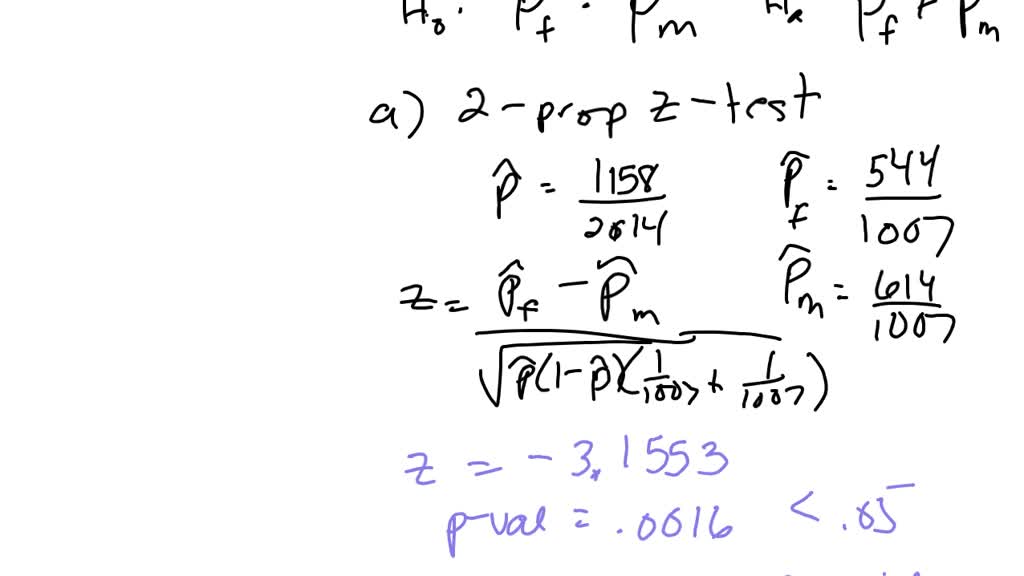 H₀: p_f = p_m Hₐ p_f ≠ p_m
a) 2-prop z-test
p̂ = 1158/2014 p̂_f = 544/1007
z = (p̂_f - p̂_m)/√(p̂(1-p̂)(1/1007 + 1/1007)) p̂_m = 614/1007
z = -3.1553
p-val = .0016 < .05